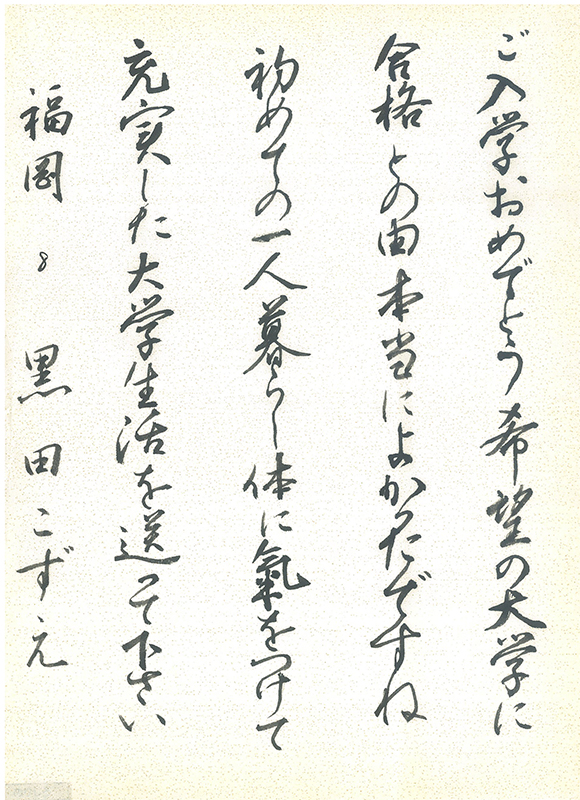 ご入学、おめでとう 希望の大学に
合格との由 本当によかったですね
初めての一人暮らし 体に氣をつけて
充実した大学生活を送って下さい
福岡 8 黒田こずえ